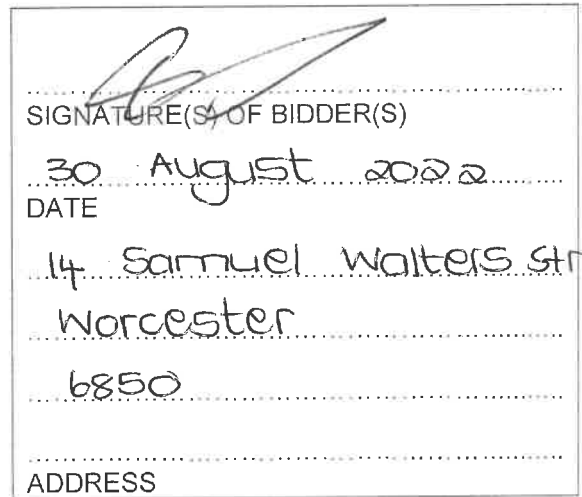 SIGNATURE(S) OF BIDDER(S)
30 August 2022
DATE
14 Samuel Walters Str
Worcester
6850
ADDRESS